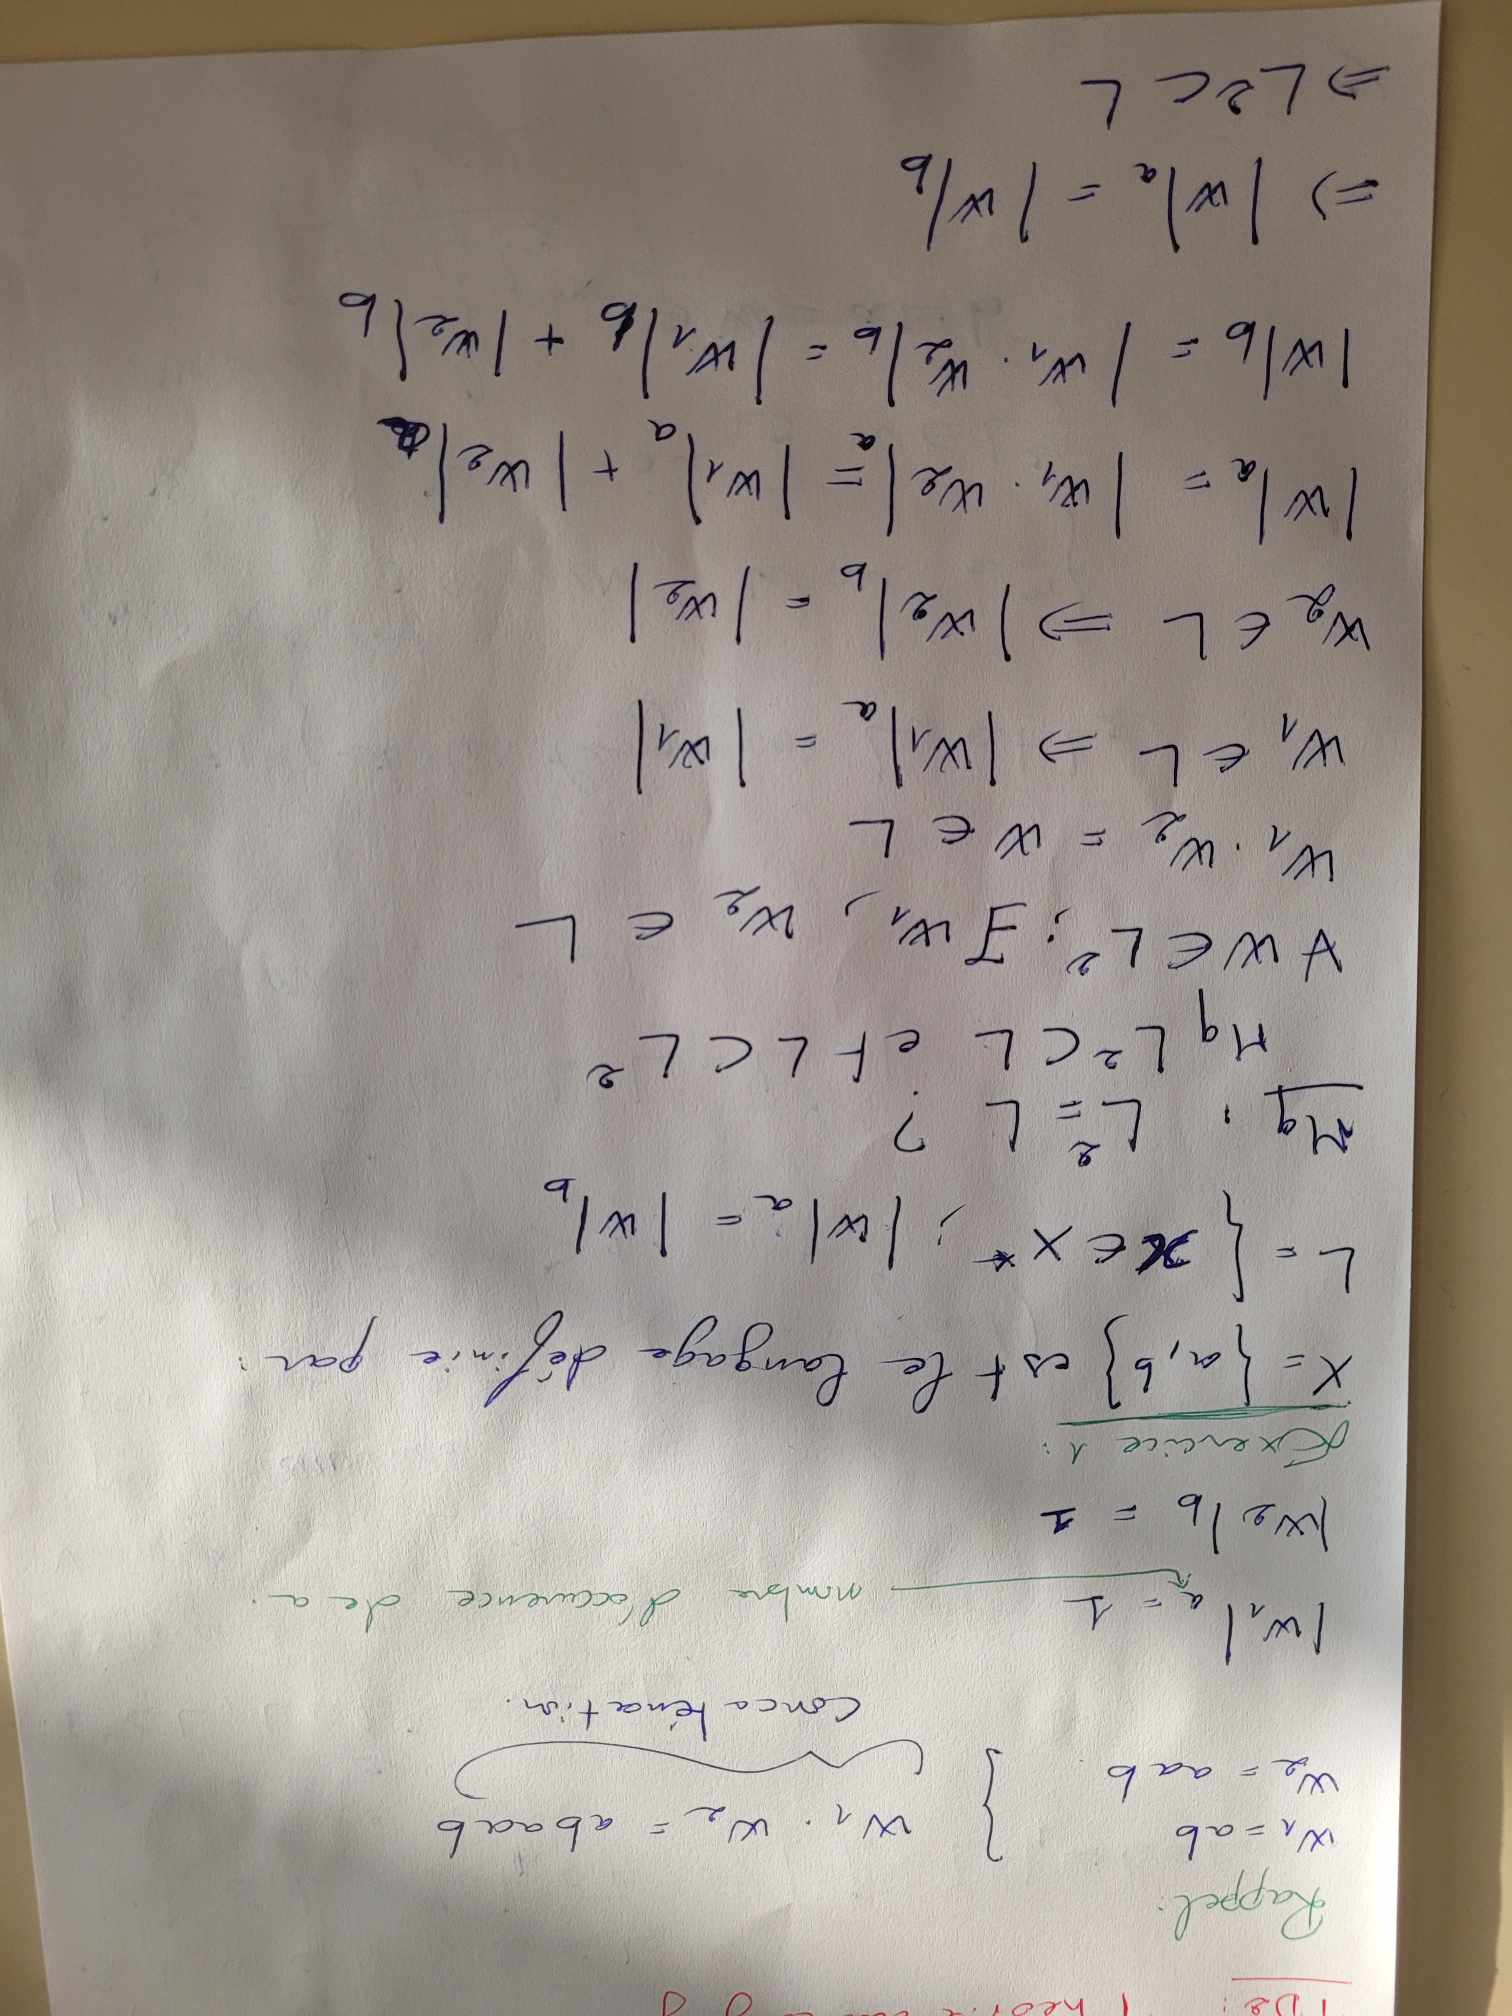 TD2: Théorie
Rappel:
w₁ = ab
w₂ = aab.
} w₁ . w₂ = abaab
Concaténation.
|w₁|ₐ = 1
nombre d'occurence de a.
|w₂|_b = 1
Exercice 1:
X = {a, b} est le langage définie par:
L = { x ∈ X* ; |w|ₐ = |w|_b
Mq : L² = L ?
Mq L² ⊂ L et L ⊂ L²
∀ w ∈ L² ; ∃ w₁, w₂ ∈ L
w₁ . w₂ = w ∈ L
w₁ ∈ L ⇒ |w₁|ₐ = |w₁|
w₂ ∈ L ⇒ |w₂|_b = |w₂|
|w|ₐ = |w₁ . w₂|ₐ = |w₁|ₐ + |w₂|ₐ
|w|_b = |w₁ . w₂|_b = |w₁|_b + |w₂|_b
⇒ |w|ₐ = |w|_b
⇒ L² ⊂ L